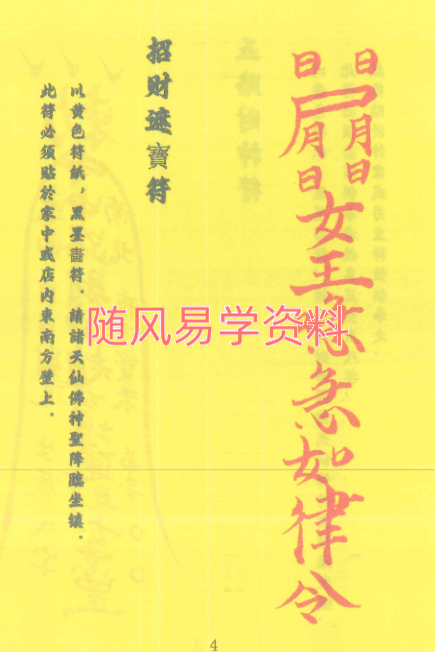 日 日
月 月
日 日
女王急急如律令
招财寶符
以黄色符紙，黑墨書符．請諸天仙佛神聖降臨坐鎮．
此符必須貼於家中或店内東南方壁上．
随风易学资料
4